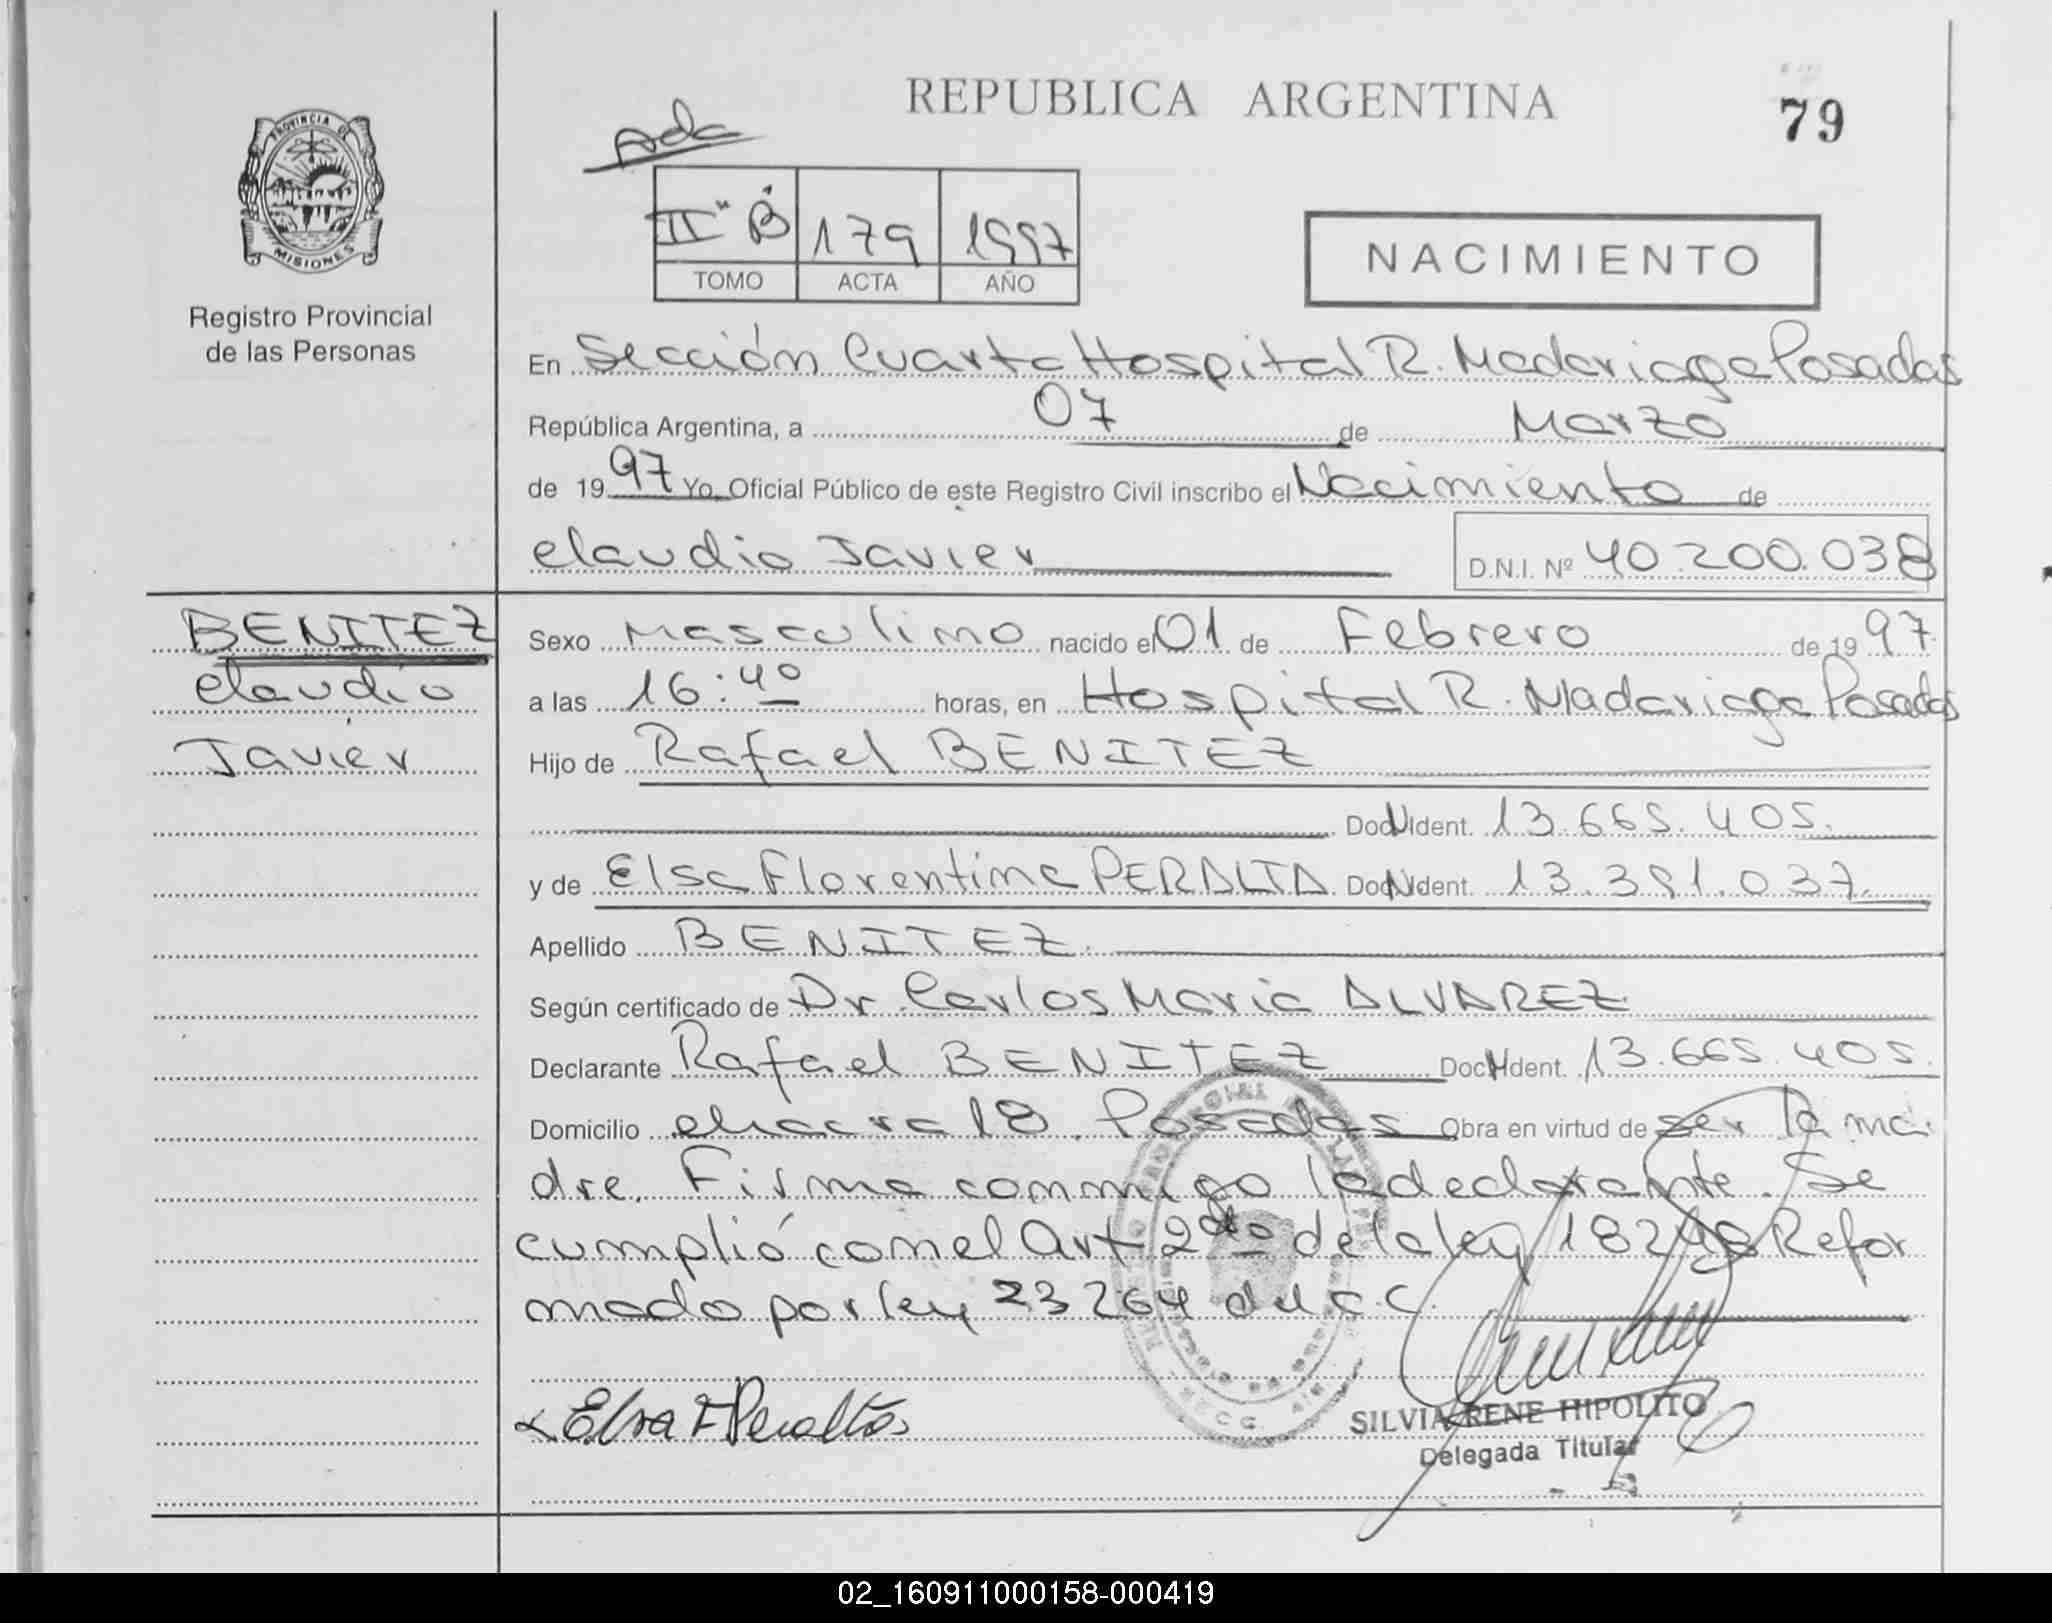 REPUBLICA ARGENTINA
79
PROVINCIA DE
MISIONES
Registro Provincial
de las Personas
II "B" 179 1997
TOMO ACTA AÑO
NACIMIENTO
En Sección Cuarta Hospital R. Madariaga Posadas
República Argentina, a 07 de Marzo
de 1997 Yo, Oficial Público de este Registro Civil inscribo el Nacimiento de
Claudio Javier D.N.I. Nº 40.200.038
BENITEZ
Claudio
Javier
Sexo Masculino nacido el 01 de Febrero de 1997.
a las 16:40 horas, en Hospital R. Madariaga Posadas
Hijo de Rafael BENITEZ
Doc N Ident. 13.665.405.
y de Elsa Florentina PERALTA Doc N Ident. 13.391.037.
Apellido BENITEZ.
Según certificado de Dr. Carlos Maria ALVAREZ
Declarante Rafael BENITEZ Doc N Ident. 13.665.405.
Domicilio chacra 18. Posadas Obra en virtud de ser la ma
dre. Firma conmigo la declarante. Se
cumplió con el Art 2do de la ley 18248 Refor
mado por ley 23264 del C.C.
Elsa F Peralta
SILVIA RENE HIPOLITO
Delegada Titular
02_160911000158-000419